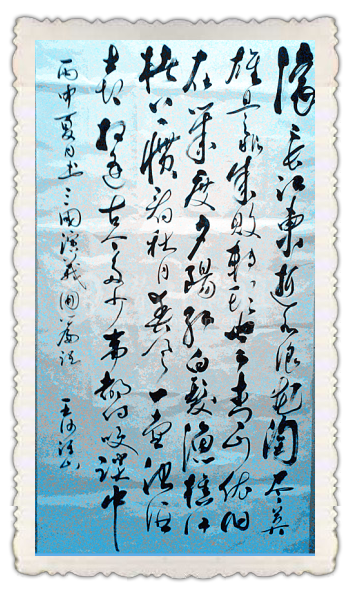 滚滚长江東逝水浪花淘尽英
雄是非成败转头空青山依旧
在几度夕陽红白髮渔樵江
渚上惯看秋月春风一壶浊酒
喜相逢古今多少事都付笑谈中
丙申夏日书三國演義開篇词